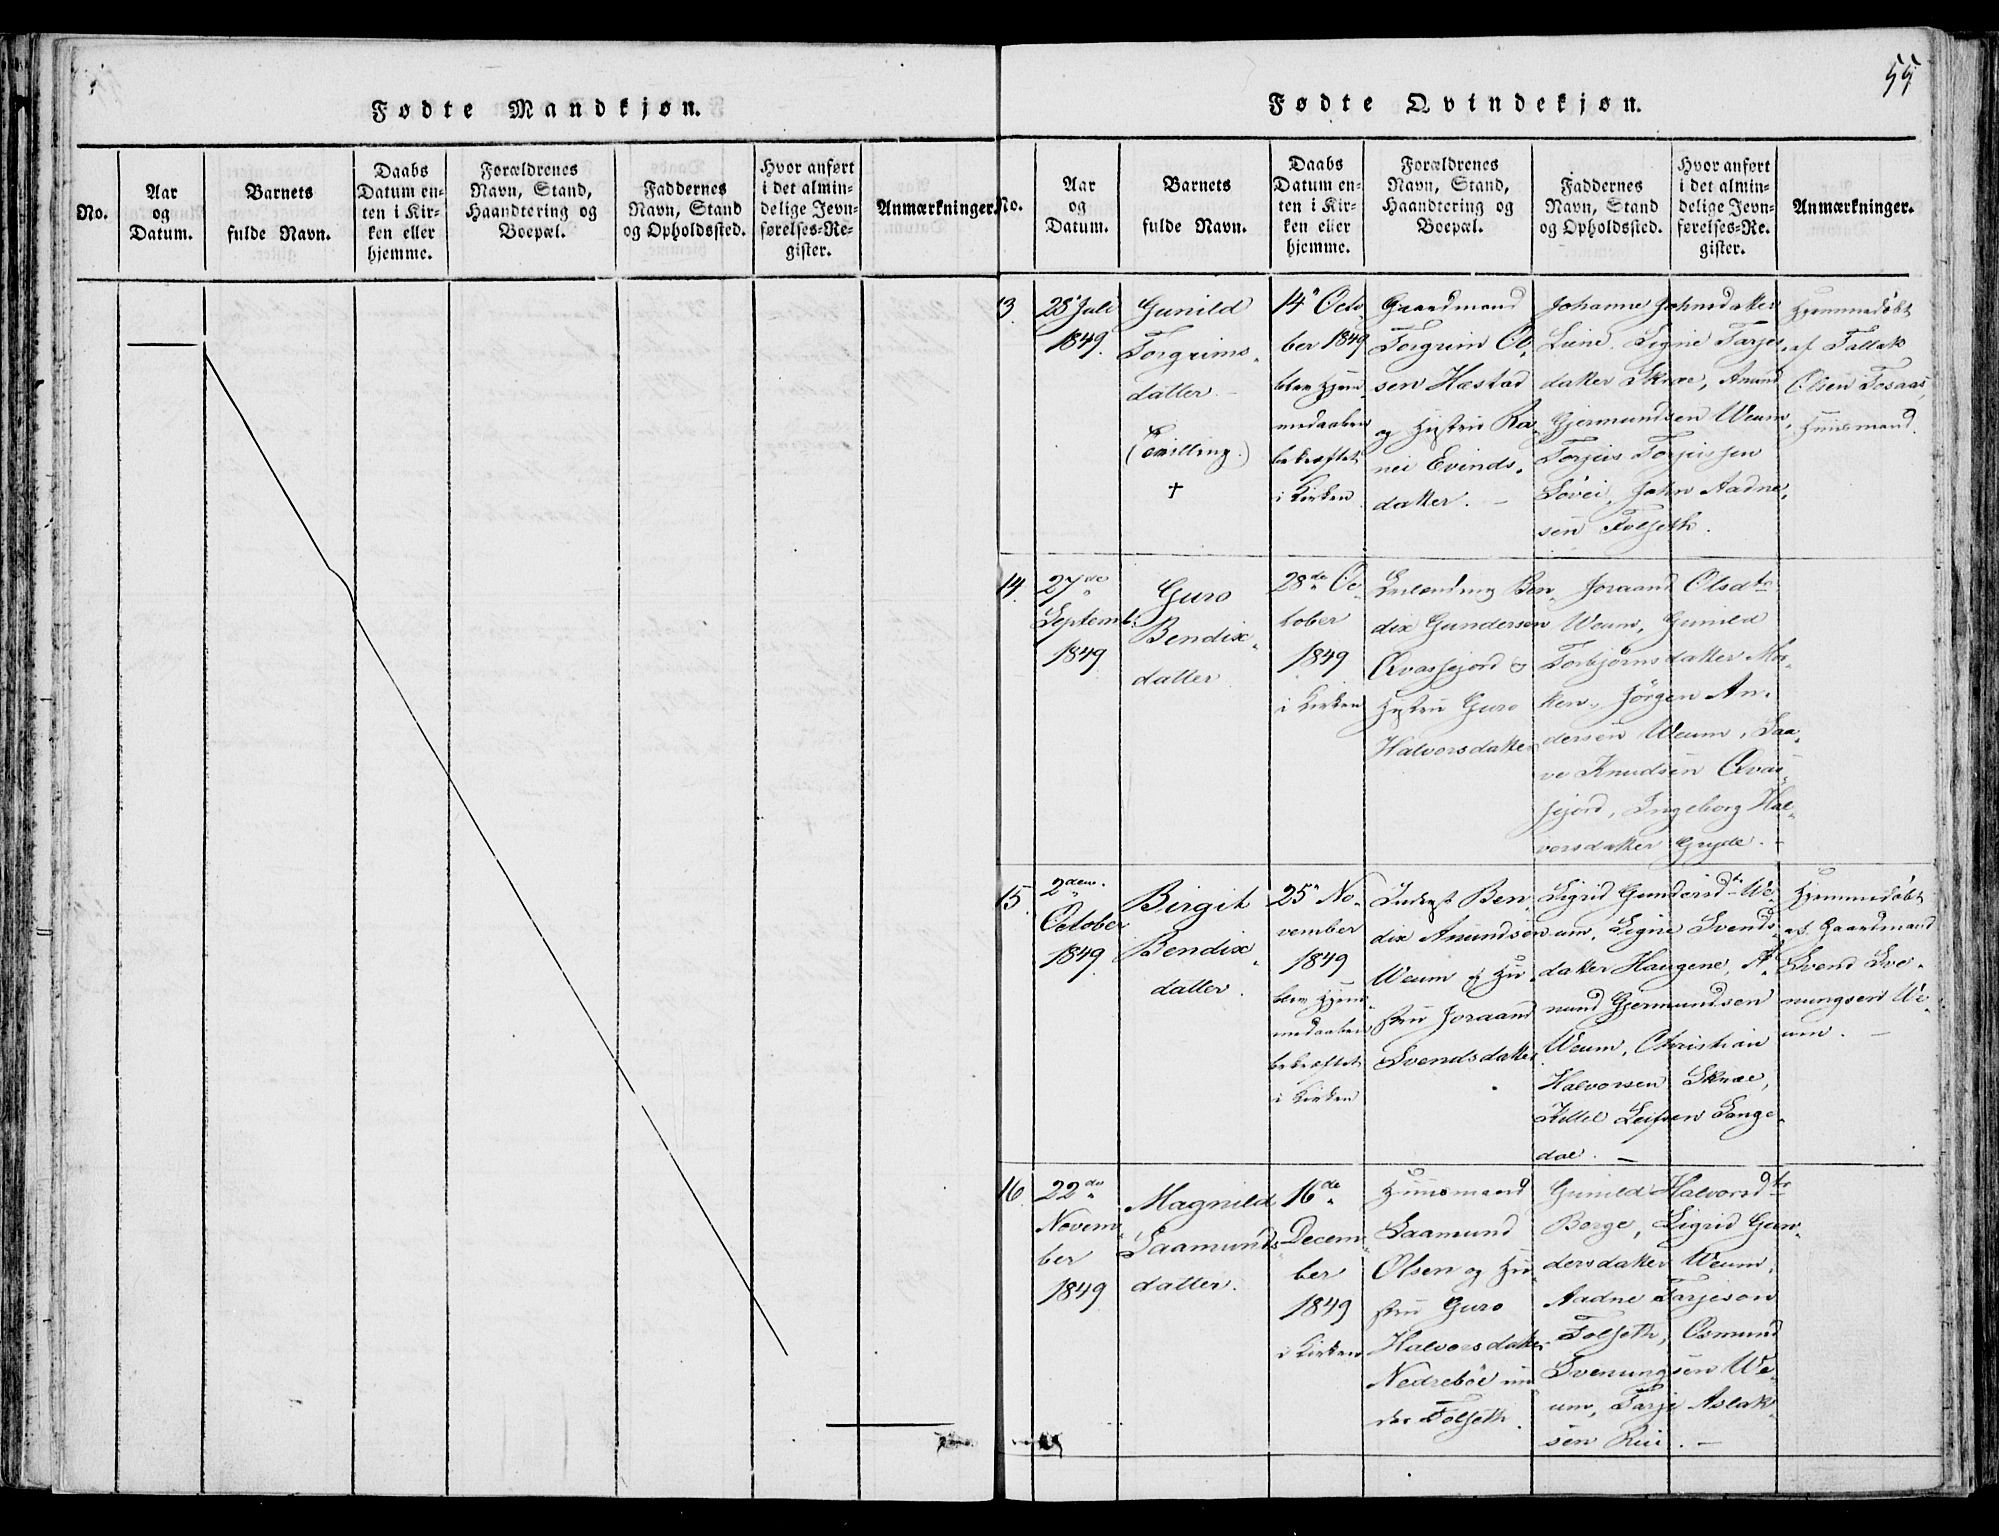 55
Fødte Mandkjøn.
No.
Aar
og
Datum.
Barnets
fulde Navn.
Daabs
Datum en-
ten i Kir-
ken eller
hjemme.
Forældrenes
Navn, Stand,
Haandtering og
Boepæl.
Faddernes
Navn, Stand
og Opholdssted.
Hvor anført
i det almin-
delige Jevn-
førelses-Re-
gister.
Anmærkninger.
Fødte Qvindekjøn.
No.
Aar
og
Datum.
Barnets
fulde Navn.
Daabs
Datum en-
ten i Kir-
ken eller
hjemme.
Forældrenes
Navn, Stand,
Haandtering og
Boepæl.
Faddernes
Navn, Stand
og Opholdssted.
Hvor anført
i det almin-
delige Jevn-
førelses-Re-
gister.
Anmærkninger.
13.
28 Juli
1849.
Gunild
Torgrims-
datter.
(Tvilling.)
†
14 Octo-
ber 1849
blev Hjem-
medaaben
bekræftet
i Kirken
Gaardmand
Torgrim Ol-
sen Hæstad
og Hustru Ra-
nei Evinds-
datter.
Johanne Johnsdatter
Liene, Signe Tarjes-
datter Skræe, Anund
Gjermundsen Weum,
Torjus Torjussen
Løvei, John Aadne-
sen Folseth.
Hjemmedøbt
af Tallak
Olsen Fosaas,
Huusmand.
14.
27de
Septemb.
1849
Guro
Bendix-
datter
28de Oc-
tober
1849
i Kirken
Ben-
dix Gundersen
Qvasfjord &
Hustru Guro
Halvorsdatter
Joraand Olsdtr
Weum, Gunild
Torbjørnsdatter Mo-
ken, Jørgen An-
dersen Weum, Saa-
ve Knudsen Qvas-
fjord, Ingeborg Hal-
vorsdatter Gryde.
15.
2den
October
1849.
Birgit
Bendix-
datter.
25 No-
vember
1849
blev Hjem-
medaaben
bekræftet
i Kirken
Inderst Ben-
dix Anundsen
Weum og Hu-
stru Joraand
Svendsdatter
Sigrid Gundersdtr We-
um, Signe Svends-
datter Haugene, A-
nund Gjermundsen
Weum, Christian
Halvorsen Skræe,
Kittel Leifsen Lange-
dal.
Hjemmedøbt
af Gaardmand
Svend Sve-
nungsen We-
um.
16.
22de
Novem-
ber
1849
Magnild
Saamunds-
datter.
16de
Decem-
ber
1849
i Kirken
Huusmand
Saamund
Olsen og Hu-
stru Guro
Halvorsdatter
Nedrebøe un-
der Folseth.
Gunild Halvorsdtr
Borge, Sigrid Gun-
dersdatter Weum,
Aadne Tarjeson
Folseth, Osmund
Svenungsen We-
um, Tarje Aslak-
sen Rui.